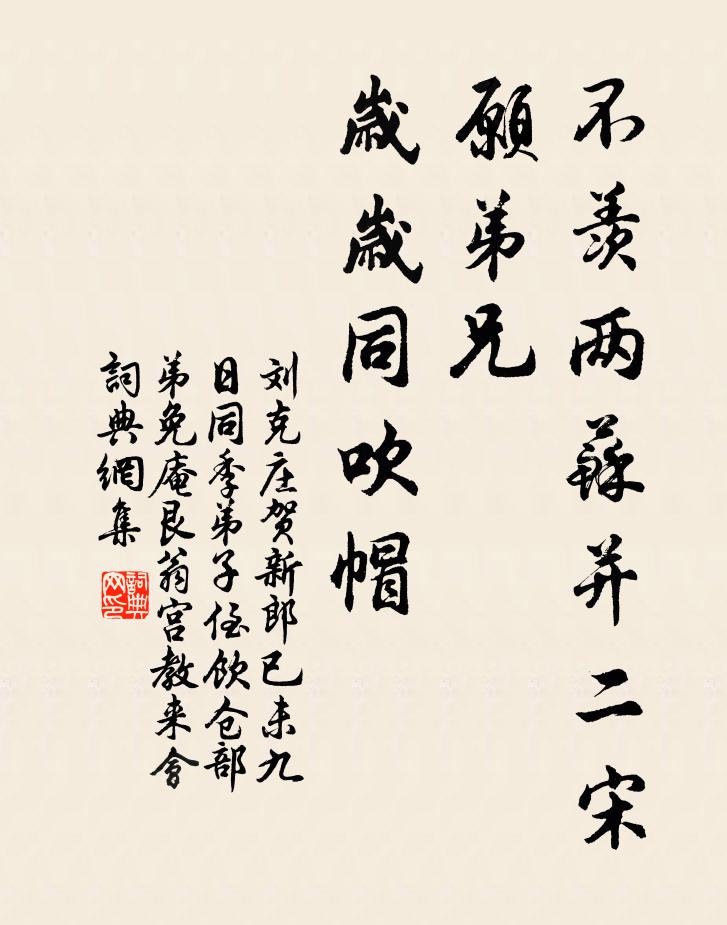 不羨两蘇并二宋
願弟兄
歲歲同吹帽
刘克庄贺新郎已未九
日同季弟子侄飲仓部
弟免庵艮翁宫教来會
詞典網集
詞典网印